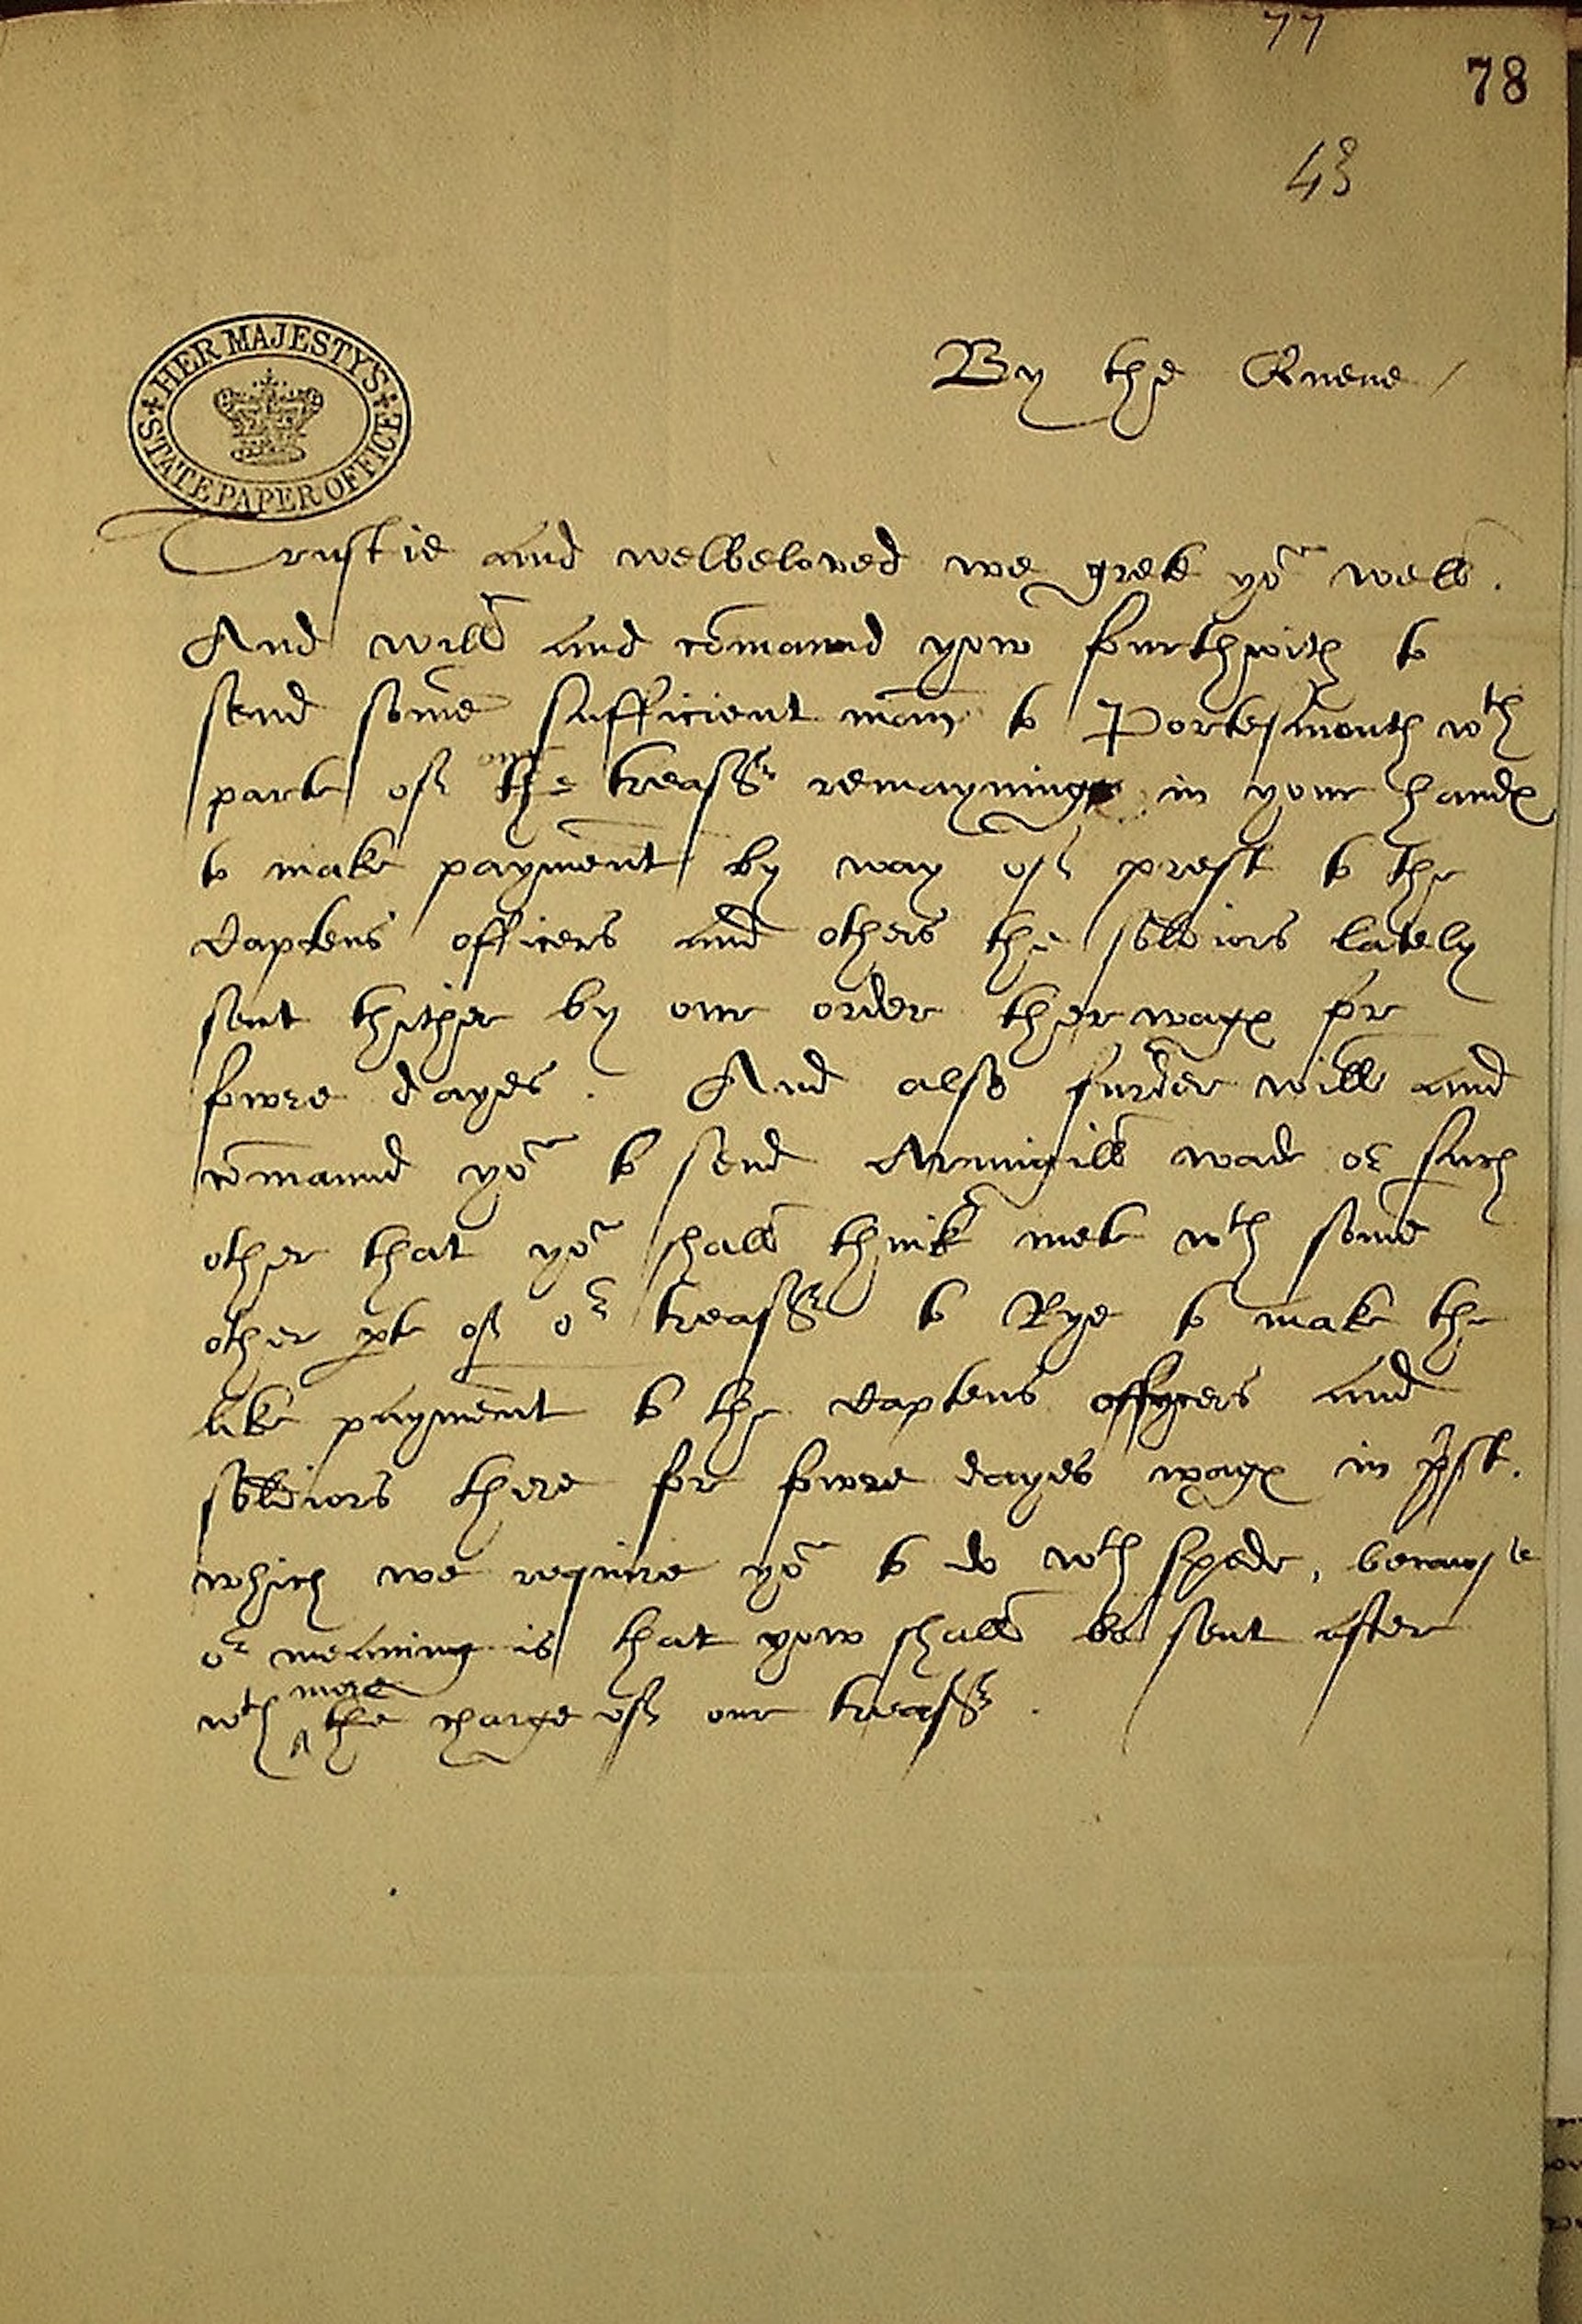 77
78
43
HER MAJESTY'S
STATE PAPER OFFICE
By the Quene /
Trustie and welbeloved we grete yoʷ well.
And will and comaund yow fourthwith to
send some sufficient man to Portesmouth wth
parte of our the treasʳ remayning in your handes
to make payment by way of prest to the
Captens officers and others the soldiors lately
sent thither by our order ther wages for
fowre dayes. And also furder will and
comaund yoʷ to send Armigill wade or such
other that yoʷ shall think mete wth some
other pte of oʳ treasʳ to Rye to make the
like payment to the Captens offycers and
soldiors there for fowre dayes wages in pst.
which we require yoʷ to do wth spede, becawse
oʳ meaning is that yow shall be sent after
wth more the charge of our treasʳ.